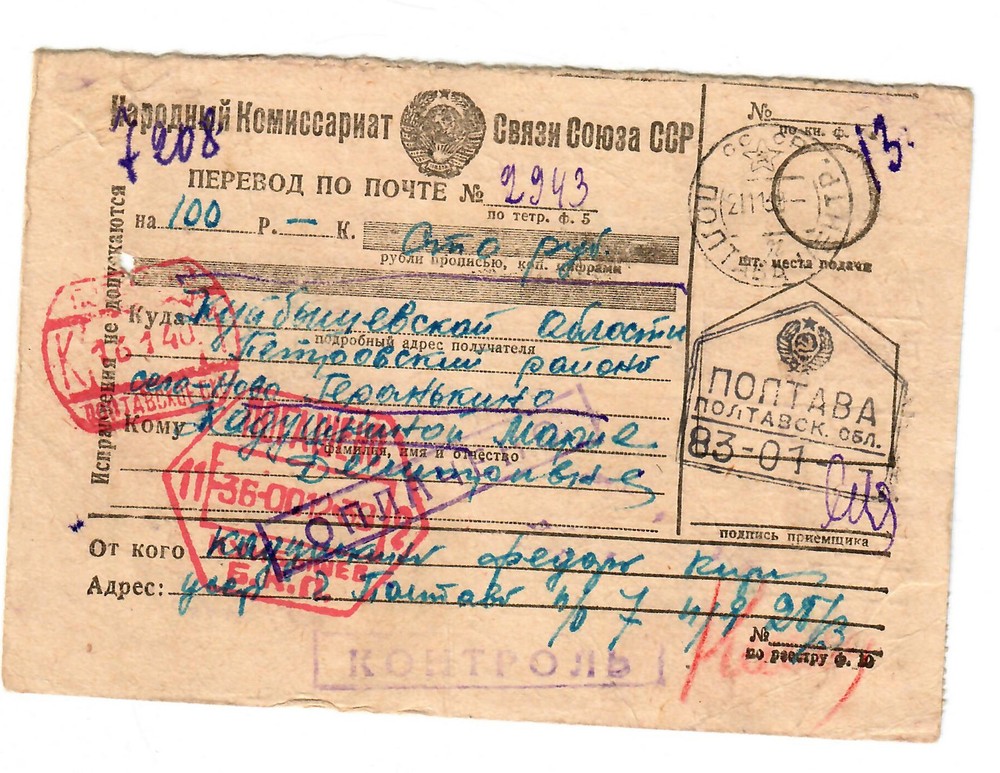 Народный Комиссариат Связи Союза ССР
7208
ПЕРЕВОД ПО ПОЧТЕ № 2943
по тетр. ф. 5
на 100 Р. — К. Сто руб.
рубли прописью, коп. цифрами
Исправления не допускаются
Куда Куйбышевской области
подробный адрес получателя
Петровский района
село-Ново Геранькино
Кому Кадушкиной Марие
фамилия, имя и отчество
Дмитриевне
От кого Кадушкин Федор
Адрес: 2 Полтава п/о 7 п/я 25/3
№
по кн. ф.
13
СССР
ПОЛТАВА
шт. места подачи
ПОЛТАВА
ПОЛТАВСК. ОБЛ.
83-01
подпись приемщика
№
по реестру ф. 10
К
16 1 40
ПОЛТАВСКОЕ
11
36-00
КОНТРОЛЬ